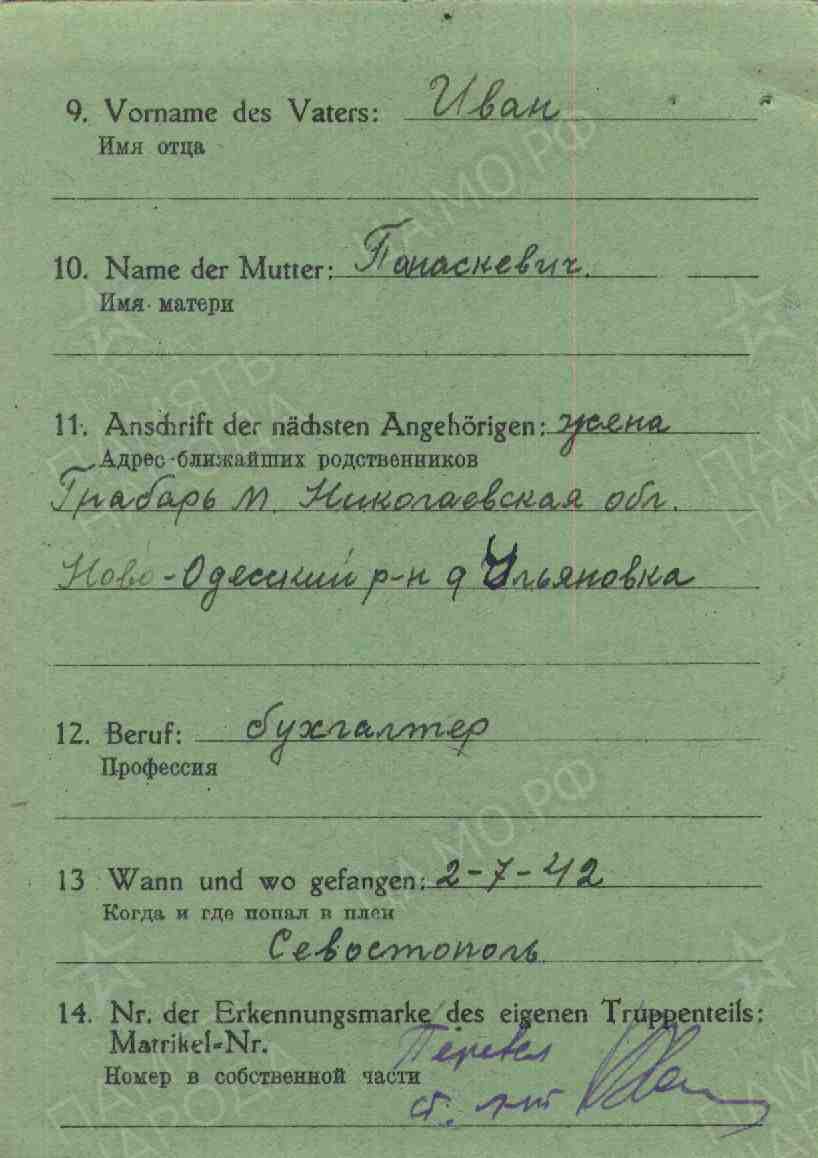 9. Vorname des Vaters: Иван
Имя отца
10. Name der Mutter: Панаскевич.
Имя матери
11. Anschrift der nächsten Angehörigen: жена
Адрес ближайших родственников
Грабарь М. Николаевская обл.
Ново-Одесский р-н д Ульяновка
12. Beruf: бухгалтер
Профессия
13 Wann und wo gefangen: 2-7-42
Когда и где попал в плен
Севостополь
14. Nr. der Erkennungsmarke des eigenen Truppenteils:
Matrikel-Nr.
Номер в собственной части
Перевел
ст. л-т